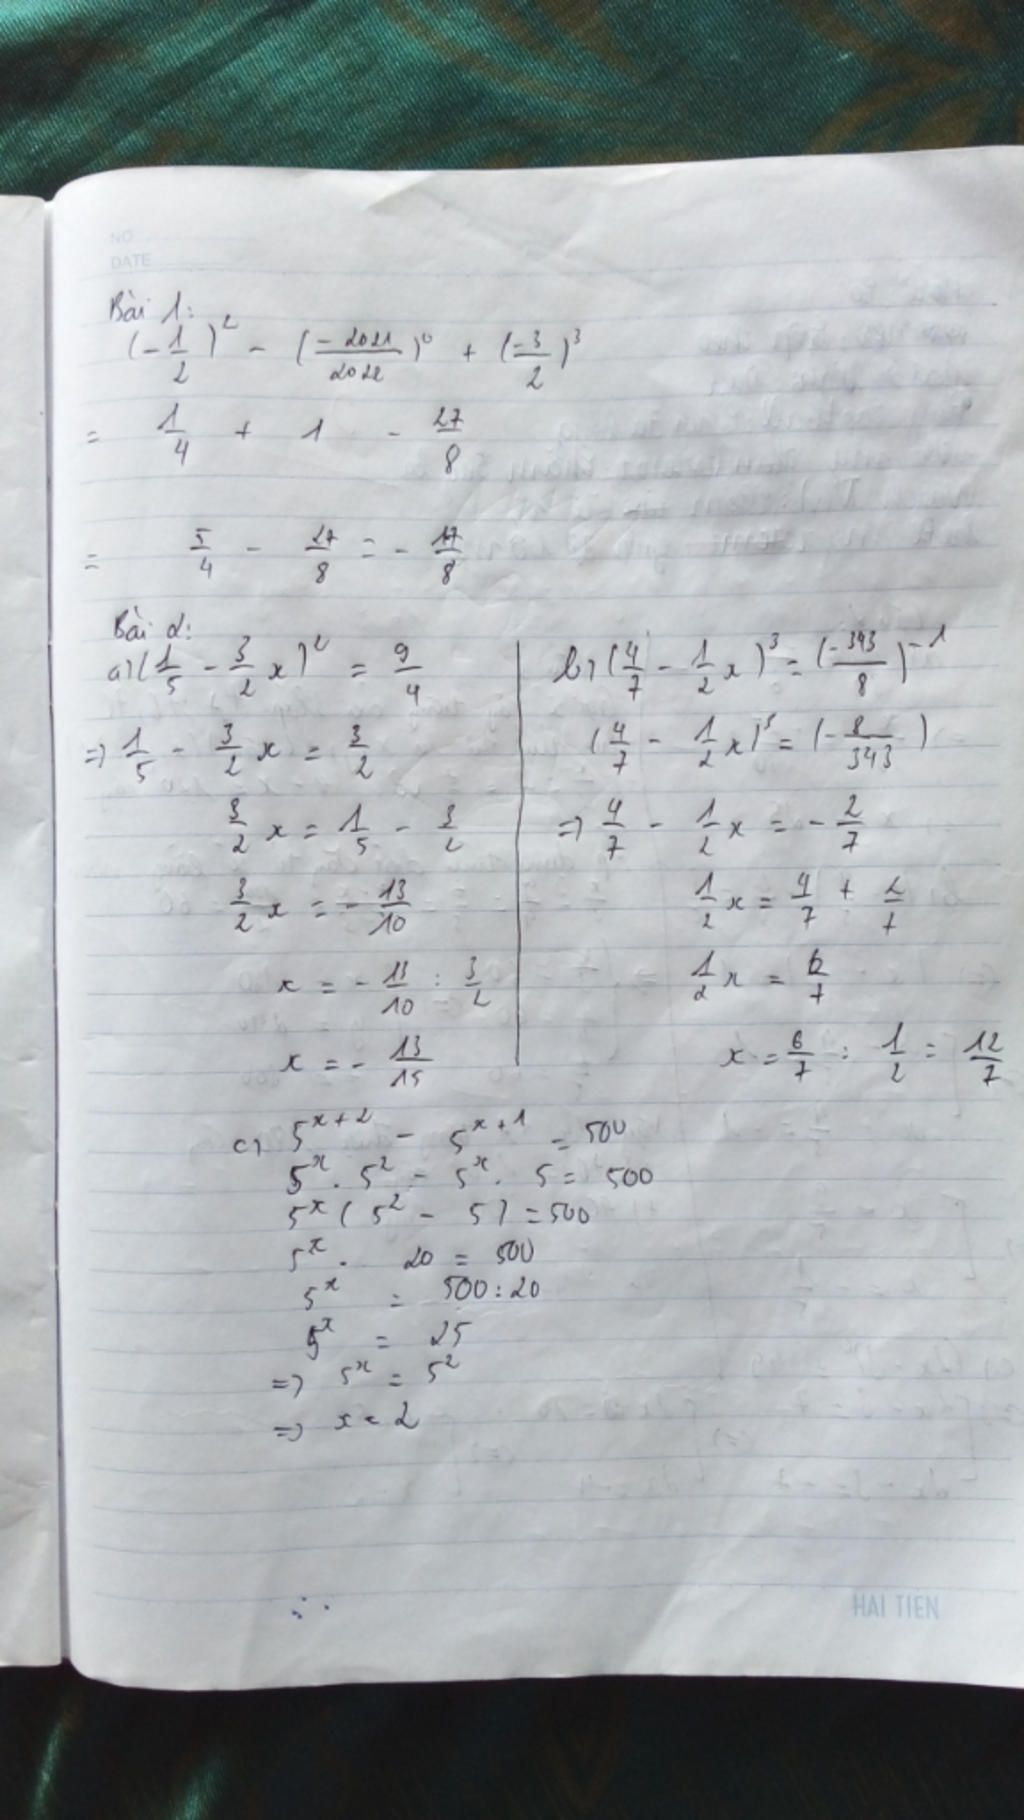 NO
DATE
Bài 1:
(-1/2)² - (-2021/2022)⁰ + (-3/2)³
= 1/4 + 1 - 27/8
= 5/4 - 27/8 = - 17/8
Bài 2:
a) (1/5 - 3/2 x)² = 9/4
=> 1/5 - 3/2 x = 3/2
3/2 x = 1/5 - 3/2
3/2 x = - 13/10
x = - 13/10 : 3/2
x = - 13/15
b) (4/7 - 1/2 x)³ = (-343/8)⁻¹
(4/7 - 1/2 x)³ = (- 8/343)
=> 4/7 - 1/2 x = - 2/7
1/2 x = 4/7 + 2/7
1/2 x = 6/7
x = 6/7 : 1/2 = 12/7
c) 5ˣ⁺² - 5ˣ⁺¹ = 500
5ˣ . 5² - 5ˣ . 5 = 500
5ˣ ( 5² - 5 ) = 500
5ˣ . 20 = 500
5ˣ = 500 : 20
5ˣ = 25
=> 5ˣ = 5²
=> x = 2
HAI TIEN